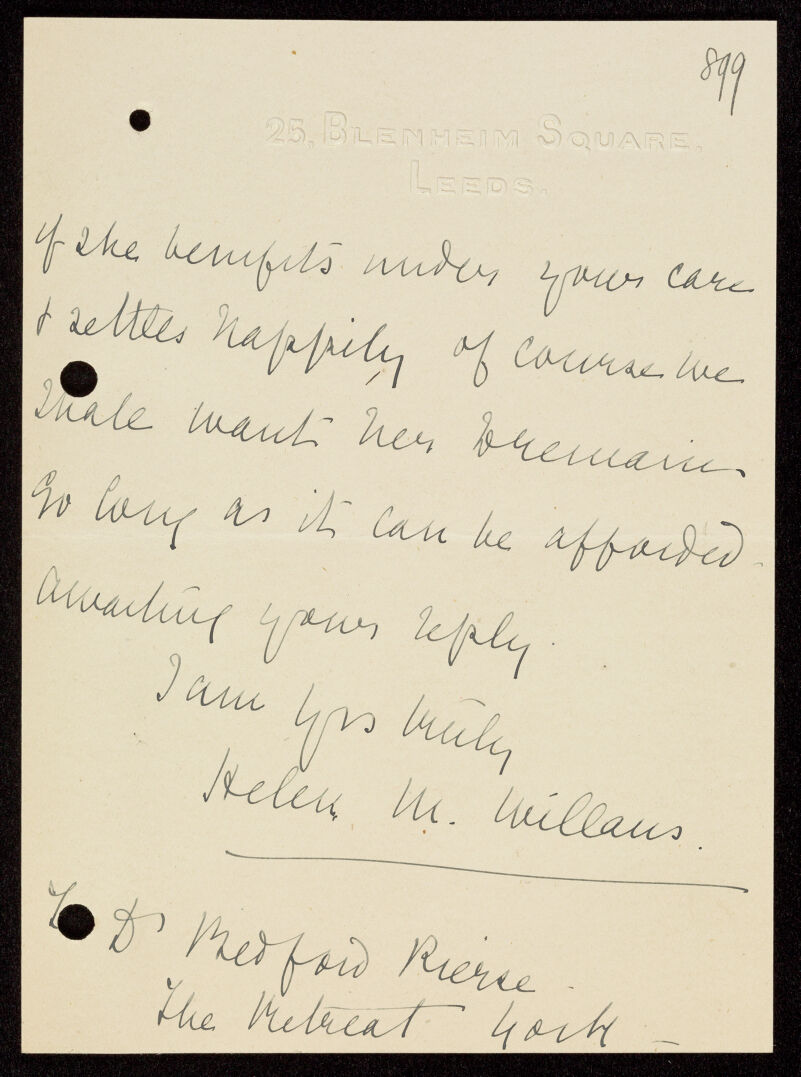 899
25, BLENHEIM SQUARE,
LEEDS.
if she benefits under your care
& settles happily, of course we
shall want her to remain
so long as it can be afforded.
Awaiting your reply.
I am Yrs truly
Helen M. Willans.
To Dr Bedford Pierse.
The Retreat York –